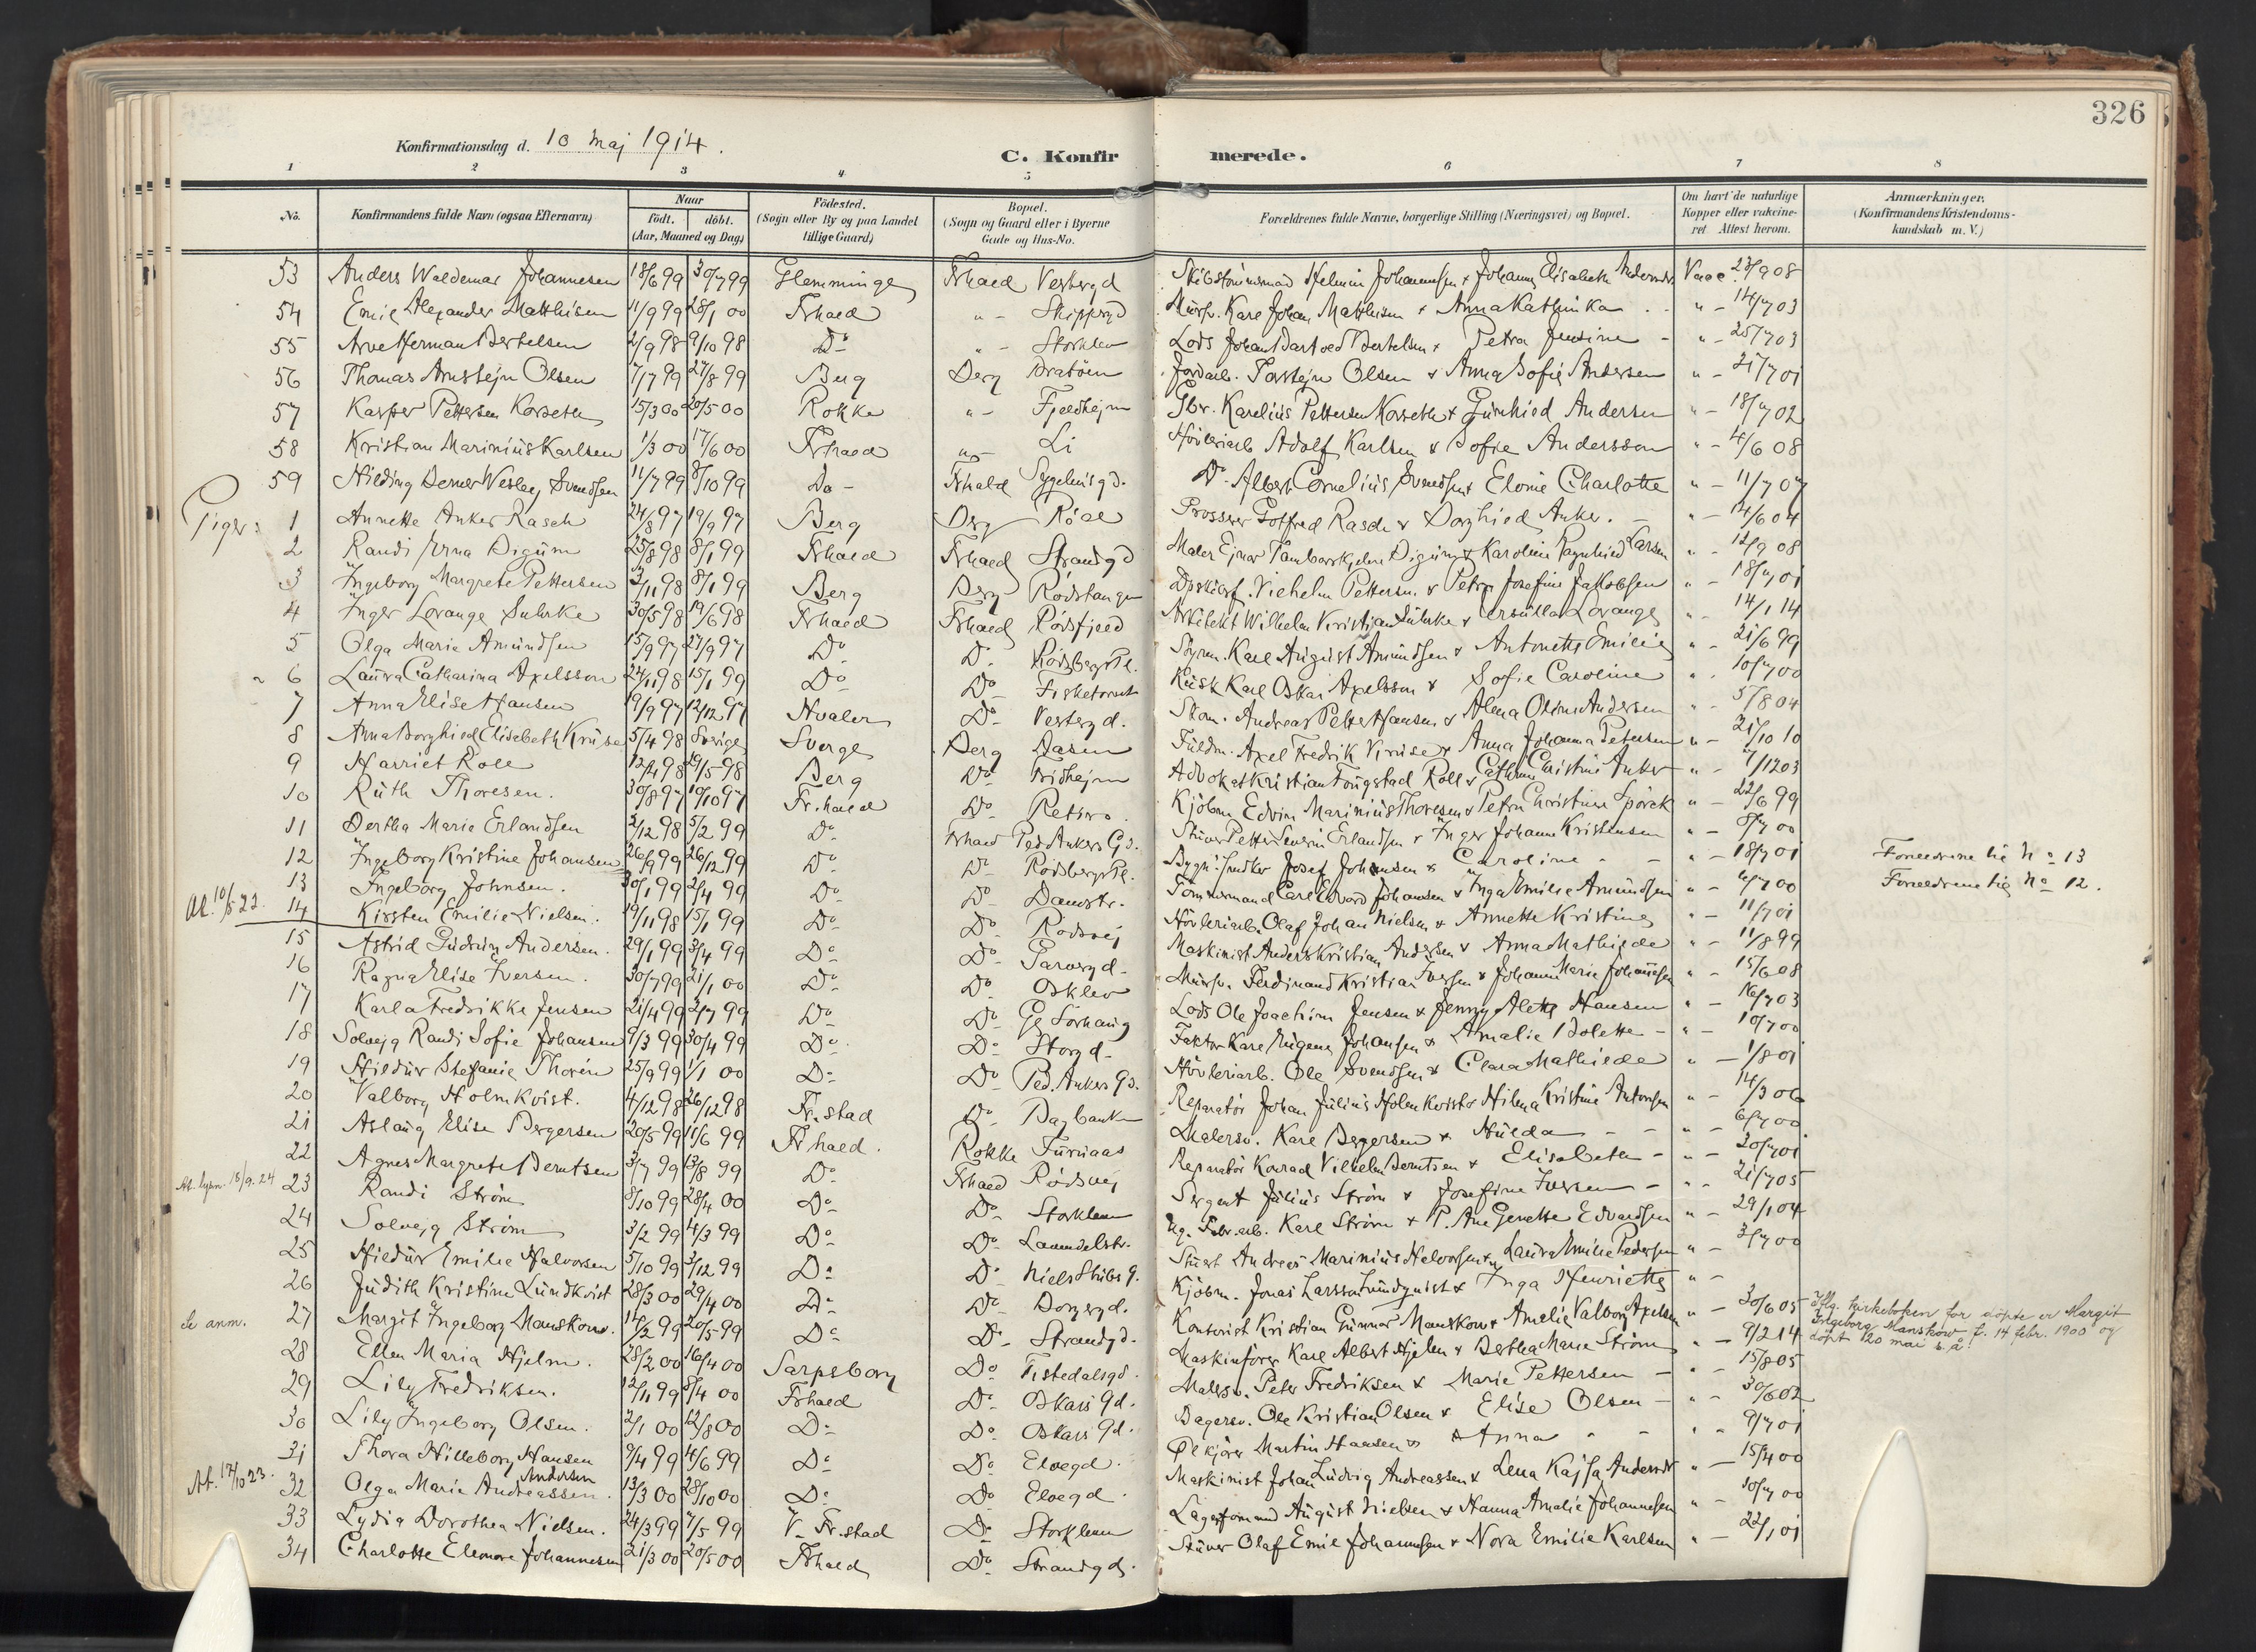 326
Konfirmationsdag d. 10 Maj 1914.
C. Konfirmerede.
1 2 3 4 5 6 7 8
No. Konfirmandens fulde Navn (ogsaa Efternavn) Naar födt. döbt. (Aar, Maaned og Dag) Födested. (Sogn eller By og paa Landet tillige Gaard) Bopæl. (Sogn og Gaard eller i Byerne Gade og Hus-No. Forældrenes fulde Navne, borgerlige Stilling (Næringsvei) og Bopæl. Om havt de naturlige Kopper eller vakcineret. Attest herom. Anmærkninger. (Konfirmandens Kristendomskundskab m. V.)
53 Anders Waldemar Johannesen 18/6 99 30/7 99 Glemminge Frhald Vesterg d Johannesen & Johanne Elisabeth Vacc. 23/9 08
54 Emil Alexander Matthisen 11/9 99 28/1 00 Frhald " - Skipperg d Mursv. Karl Johan Mathisen & Anna Kathinka " - 14/7 03
55 Arve Herman Bertelsen 2/9 98 9/10 98 Do " - Storklev Lods Johan Bartold Bertelsen & Petra Jensine " - 25/7 03
56 Thomas Arnstejn Olsen 7/7 99 27/8 99 Berg Berg Bratöien Jordarb. Torstejn Olsen & Anna Sofie Andersen " - 21/7 01
57 Kasper Pettersen Korseth 15/3 00 20/5 00 Rokke " - Fjeldhejm Gbr. Karelius Pettersen Korseth & Gunhild Andersen " - 18/7 02
58 Kristian Marinius Karlsen 1/3 00 17/6 00 Frhald " - Li Hövleriarb. Adolf Karlsen & Sofie Andersson " - 4/6 08
59 Hilding Werner Wesley Svendsen 11/7 99 8/10 99 Do - Frhald Sygehusgd. Do Albert Cornelius Svendsen & Elonie Charlotte " - 11/7 07
Piger: 1 Annette Anker Rasch 24/8 97 19/9 97 Berg Berg Röd Prosserer Gotfred Rasch & Borghild Anker. " - 14/6 04
2 Randi Erna Digum 25/8 98 8/1 99 Frhald Frhald Strandg d Maler Ejnar Tambarskjelve Digum & Karoline Ragnhild Larsen " - 12/9 08
3 Ingeborg Margrete Pettersen 3/11 98 8/1 99 Berg Berg Rödstangen Vilhelm Pettersen & Petra Josefine Jakobsen " - 18/7 01
4 Inger Lorange Suhrke 30/5 98 19/6 98 Frhald Frhald Rödsfjeld Arkitekt Wilhelm Kristian Suhrke & Ursulla Lorange " - 14/1 14
5 Olga Marie Amundsen 15/9 97 27/9 97 Do Do Rödsberg Pl. Styrm. Karl August Amundsen & Antonette Emilie " - 21/6 99
6 Laura Catharina Axelsson 24/11 98 15/1 99 Do Do Fisketorvet Kusk Karl Oskar Axelsson & Sofie Caroline " - 10/7 00
7 Anna Elise Hansen 19/9 97 12/12 97 Hvaler Do Vesterg d. Skom. Andreas Petter Hansen & Alma Olivia Andersen " - 5/8 04
8 Anna Borghild Elisabeth Kruse 5/4 98 Sverige Sverge Berg Aasen Fuldm. Axel Fredrik Kruse & Anna Johanna Petersen " - 21/10 10
9 Harriet Roll 12/4 98 29/5 98 Berg Do Fridhejm Advokat Kristian Fougstad Roll & Cathrine Christine Anker " - 7/12 03
10 Ruth Thoresen. 30/8 97 10/10 97 Fr.hald Do Retiro. Kjöbm. Edvin Marinius Thoresen & Petra Christine Spörck " - 22/6 99
11 Bertha Marie Erlandsen 2/12 98 5/2 99 Do Frhald Ped Ankers Gd. Stuver Petter Severin Erlandsen & Inger Johanne Kristensen " - 8/7 00
12 Ingeborg Kristine Johansen 26/9 99 26/12 99 Do Do Rödsberg Pl. Josef Johansen & Caroline " - 18/7 01 Forældrene lig No 13
13 Ingeborg Johnsen. 30/1 99 2/4 99 Do Do Damstr. Tömmermand Carl Edvard Johansen & Inga Emilie Amundsen " - 4/7 00 Forældrene lig No 12.
At. 10/5 22. 14 Kirsten Emilie Nielsen. 19/11 98 15/1 99 Do Do Rödsvej Hövleriarb. Olaf Johan Nielsen & Annette Kristine " - 11/7 01
15 Astrid Gudrun Andersen. 29/1 99 3/4 99 Do Do Garverg d. Maskinist Anders Kristian Andersen & Anna Mathilde " - 11/8 99
16 Ragna Elise Iversen. 30/7 99 21/1 00 Do Do Osklev Mursv. Ferdinand Kristian Iversen & Johanne Marie Johannesen " - 15/6 08
17 Karla Fredrikke Jensen 21/4 99 2/7 99 Do Do Gl Sorhaug Lods Ole Joachim Jensen & Jenny Alette Hansen " - 16/7 03
18 Solvejg Randi Sofie Johansen 9/3 99 30/4 99 Do Do Storg d. Faktor Karl Eugene Johansen & Amalie Bolette " - 10/7 00
19 Hildur Stefanie Thorén 25/9 99 1/1 00 Do Do Ped. Ankers Gd. Hövleriarb. Ole Svendsen & Clara Mathilde " - 1/8 01
20 Valborg Holmkvist. 4/12 98 26/12 98 Fr.stad Do Dagbanken Reparatör Johan Julius Holmkvist & Hilma Kristine Antonsen " - 14/3 06
21 Aslaug Elise Bergersen 20/5 99 11/6 99 Frhald. Rokke Furuaas Malersv. Karl Bergersen & Hulda " - 6/7 00
22 Agnes Margrete Berntsen 3/7 99 13/8 99 Do Frhald Rödsvej Reparatör Konrad Vilhelm Berntsen & Elisabeth " - 20/7 01
At. lysn. 18/9. 24 23 Randi Ström 8/10 99 28/4 00 Do Do Storkleven Sergent Julius Ström & Josefine Iversen " - 21/7 05
24 Solvejg Ström 3/2 99 4/3 99 Do Do Lavendelstr. Karl Ström & P. Ane Genette Edvardsen " - 29/1 04
25 Hildur Emilie Halvorsen 5/10 99 3/12 99 Do Do Niels Stubs G. Stuert Andreas Marinius Halvorsen & Laura Emilie Pedersen " - 3/7 00
26 Judith Kristine Lundkvist 28/3 00 29/4 00 Do Do Borgerg d. Kjöbm. Jonas Larsson Lundquist & Inga Henriette " -
Se anm. 27 Margit Ingeborg Manskow. 14/2 99 20/5 99 Do Do Strandg d. Kontorist Kristian Gunnar Manskow & Amelie Valborg Axelsen " - 30/6 05 Iflg. kirkeboken for döpte er Margit
Ingeborg Manskow f. 14 febr. 1900 og
döpt 20 mai s. å.
28 Ellen Maria Hjelm. 28/2 00 16/4 00 Sarpsborg Do Tistedalsgd. Maskinförer Karl Albert Hjelm & Bertha Marie Ström " - 9/2 14
29 Lily Fredriksen. 12/11 99 8/4 00 Frhald Do Oskars Gd. Malersv. Peter Fredriksen & Marie Pettersen " - 15/8 05
30 Lily Ingeborg Olsen. 2/1 00 12/8 00 Do Do Oskars Gd. Bagersv. Ole Kristian Olsen & Elise Olsen " - 30/6 02
31 Thora Hilleborg Hansen 9/4 99 4/6 99 Do Do Elvegd. Ölkjörer Martin Hansen & Anna " - 9/7 01
At. 17/10 23. 32 Olga Marie Andreassen. Andersen 13/3 00 28/10 00 Do Do Elvegd. Maskinist Johan Ludvig Andreassen & Lena Kajsa " - 15/4 00
33 Lydia Dorothea Nielsen. 24/3 99 7/5 99 V. Fr.stad Do Storkleven Lagerformand August Nielsen & Hanna Amalie Johannesen " - 10/7 00
34 Charlotte Eleonore Johannesen 21/3 00 20/5 00 Frhald Do Strandgd. Stuver Olaf Emil Johannesen & Nora Emilie Karlsen " - 22/1 01